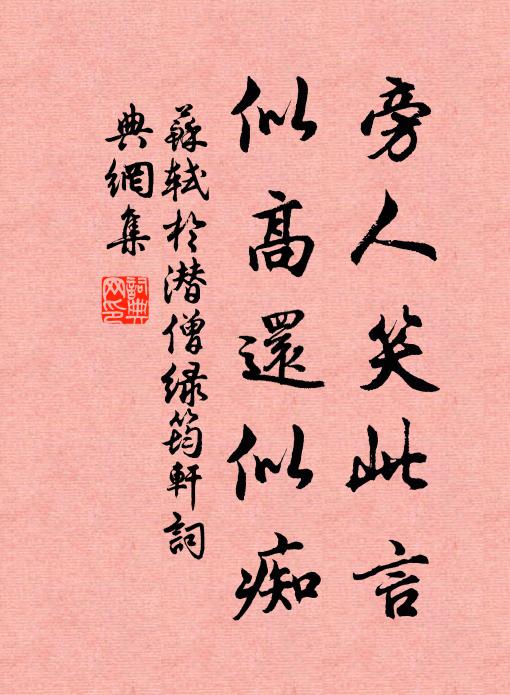 旁人笑此言
似高還似痴
蘇軾於潜僧緑筠軒詞
典網集
詞典網印